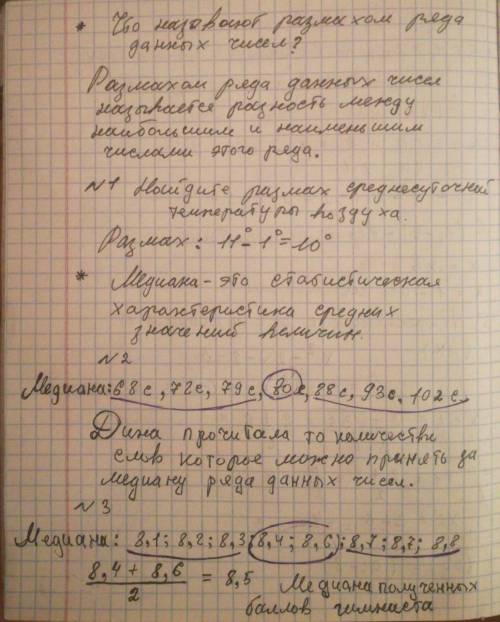 * Что называют размахом ряда
данных чисел?
Размахом ряда данных чисел
называется разность между
наибольшим и наименьшим
числами этого ряда.
№1 Найдите размах среднесуточной
температуры воздуха.
Размах: 11° - 1° = 10°
* Медиана - это статистическая
характеристика средних
значений величин.
№2
Медиана: 68с, 72с, 79с, 80с, 88с, 93с, 102с
Дина прочитала то количество
слов которое можно принять за
медиану ряда данных чисел.
№3
Медиана: 8,1; 8,2; 8,3; 8,4; 8,6; 8,7; 8,7; 8,8
8,4 + 8,6
2
= 8,5 Медиана полученных
баллов гимнаста